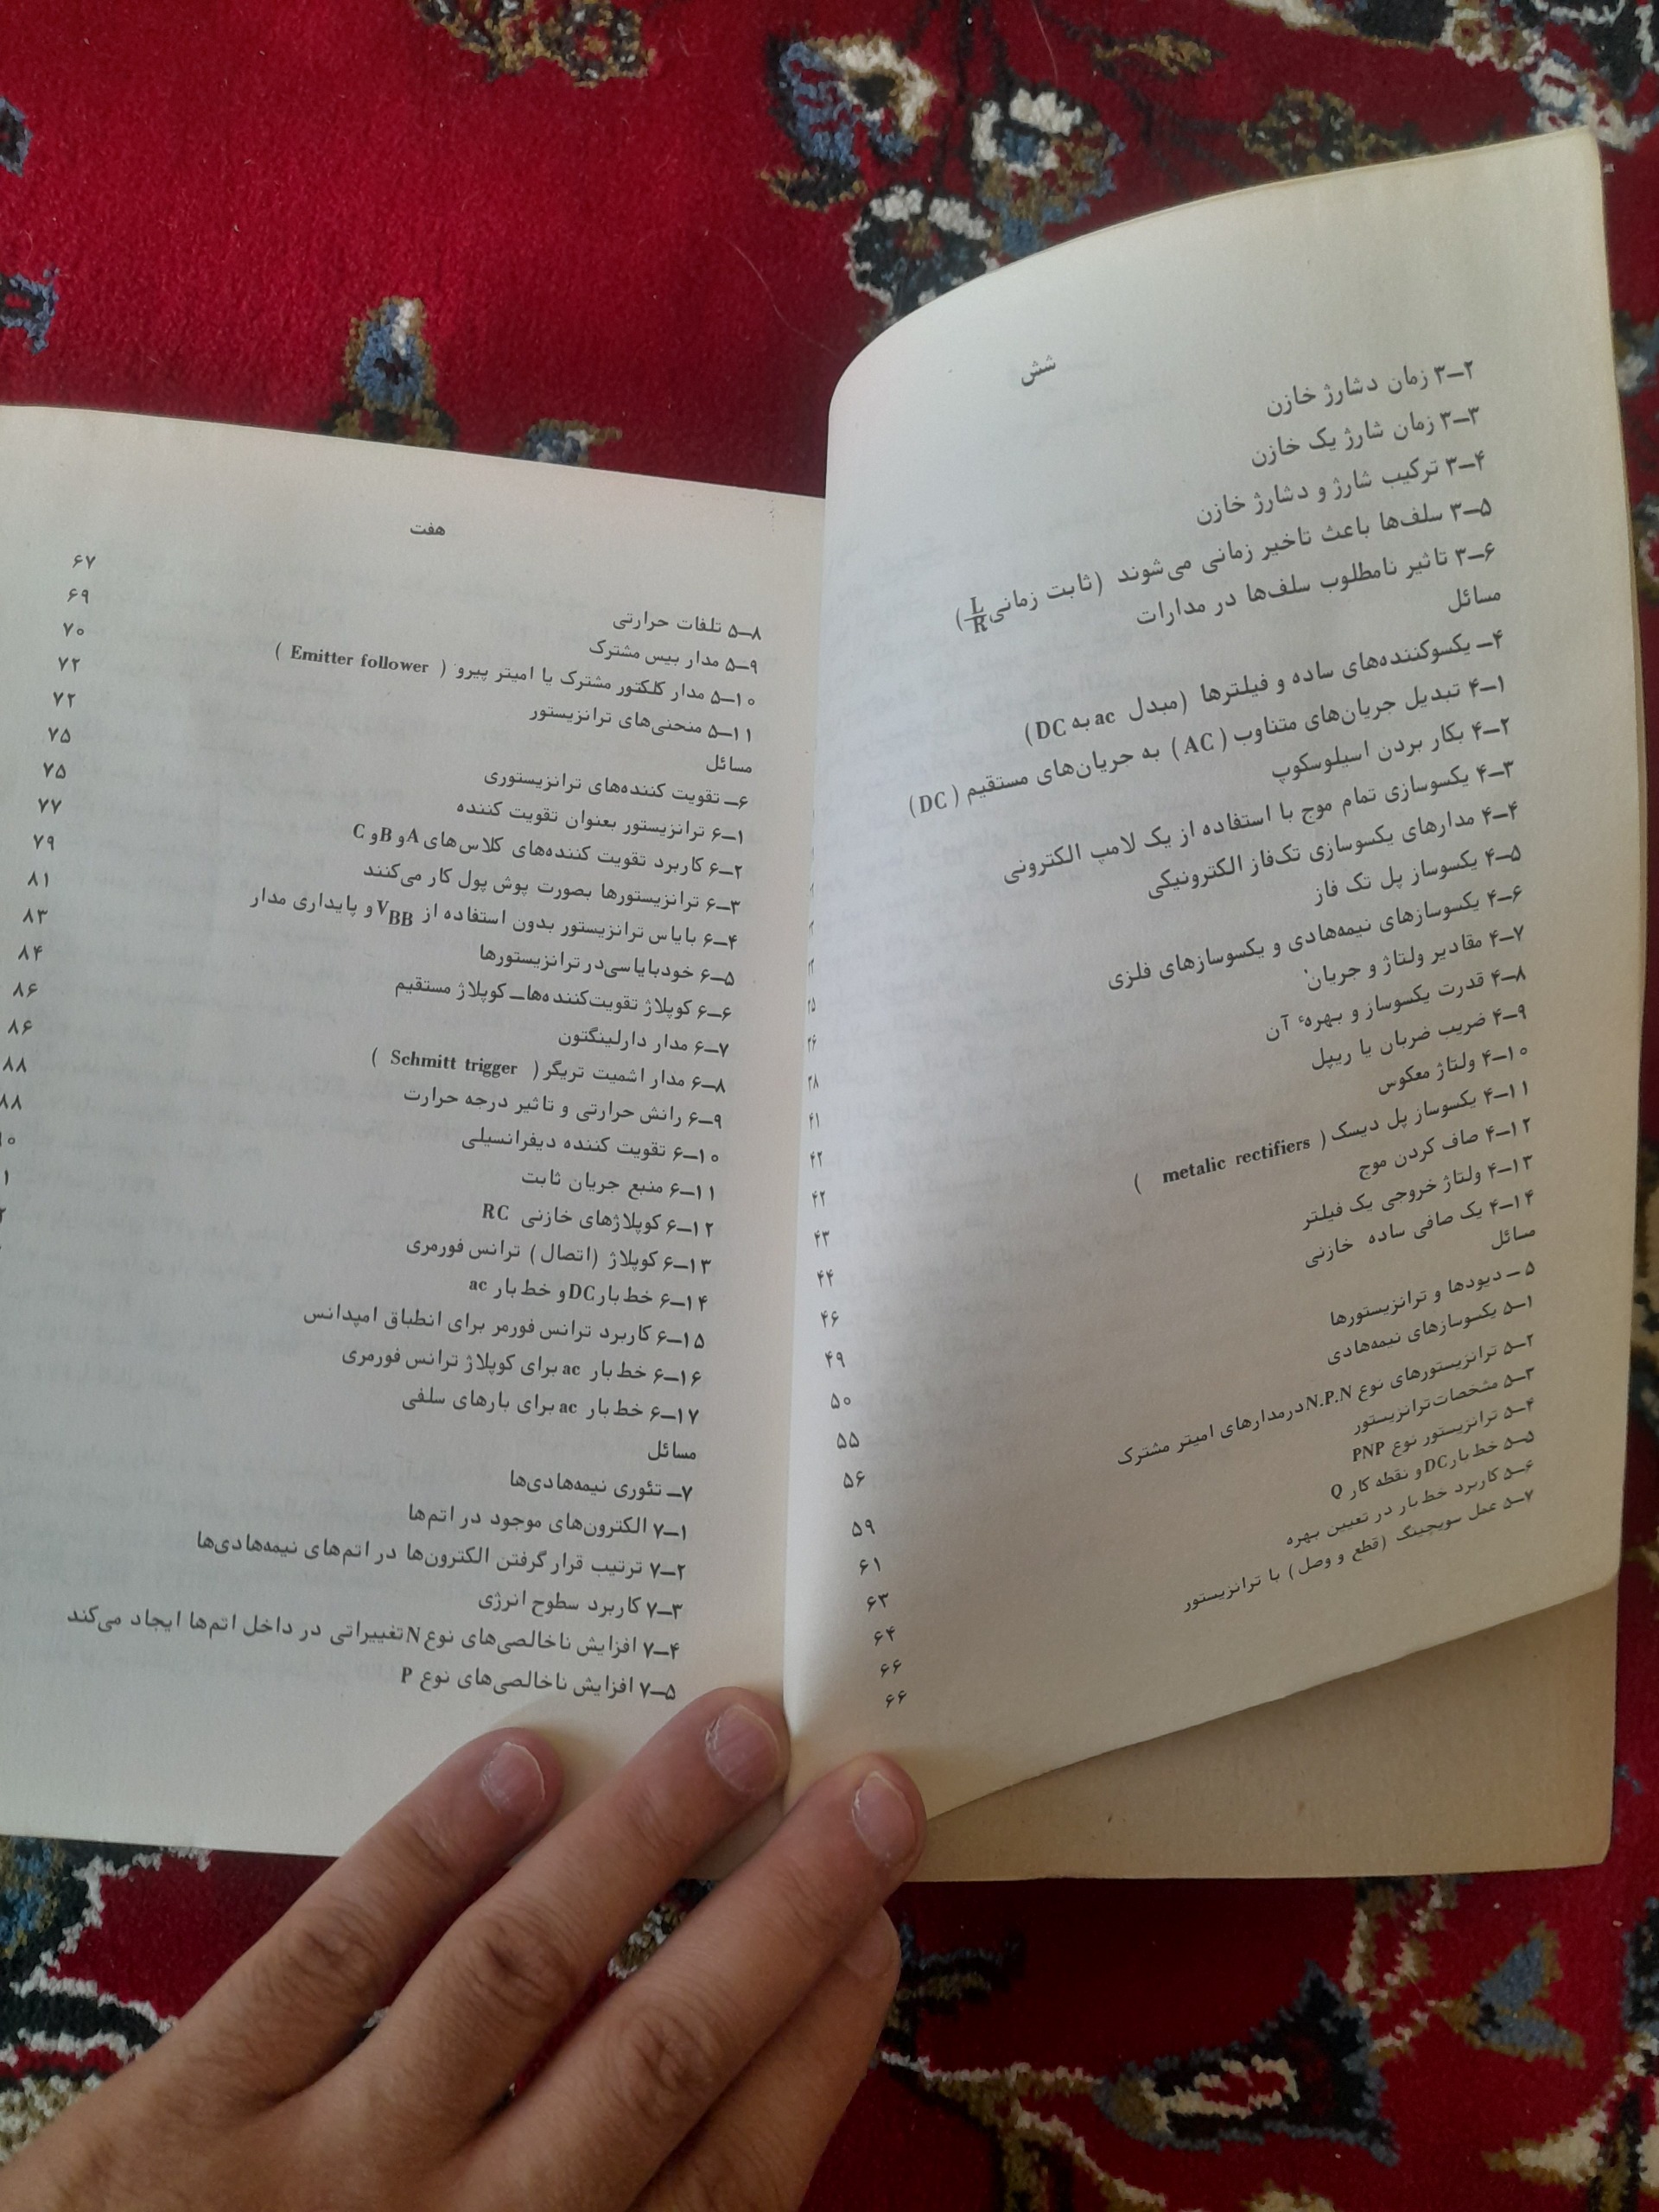 شش
۳-۲ زمان دشارژ خازن
۳-۳ زمان شارژ یک خازن
۳-۴ ترکیب شارژ و دشارژ خازن
۳-۵ سلف‌ها باعث تاخیر زمانی می‌شوند (ثابت زمانی L/R)
۳-۶ تاثیر نامطلوب سلف‌ها در مدارات
مسائل
۴- یکسوکننده‌های ساده و فیلترها (مبدل ac به DC)
۴-۱ تبدیل جریان‌های متناوب (AC) به جریان‌های مستقیم (DC)
۴-۲ بکار بردن اسیلوسکوپ
۴-۳ یکسوسازی تمام موج با استفاده از یک لامپ الکترونی
۴-۴ مدارهای یکسوسازی تک‌فاز الکترونیکی
۴-۵ یکسوساز پل تک فاز
۴-۶ یکسوسازهای نیمه‌هادی و یکسوسازهای فلزی ۳۶
۴-۷ مقادیر ولتاژ و جریان ۳۸
۴-۸ قدرت یکسوساز و بهرهٔ آن ۴۱
۴-۹ ضریب ضربان یا ریپل ۴۲
۴-۱۰ ولتاژ معکوس ۴۲
۴-۱۱ یکسوساز پل دیسک (metalic rectifiers) ۴۳
۴-۱۲ صاف کردن موج ۴۴
۴-۱۳ ولتاژ خروجی یک فیلتر ۴۶
۴-۱۴ یک صافی ساده خازنی ۴۹
مسائل ۵۰
۵- دیودها و ترانزیستورها ۵۵
۵-۱ یکسوسازهای نیمه‌هادی ۵۶
۵-۲ ترانزیستورهای نوع N.P.N درمدارهای امیتر مشترک ۵۹
۵-۳ مشخصات ترانزیستور ۶۱
۵-۴ ترانزیستور نوع PNP ۶۳
۵-۵ خط بار DC و نقطه کار Q ۶۴
۵-۶ کاربرد خط بار در تعیین بهره ۶۶
۵-۷ عمل سویچینگ (قطع و وصل) با ترانزیستور ۶۶
هفت
۵-۸ تلفات حرارتی ۶۷
۵-۹ مدار بیس مشترک ۶۹
۵-۱۰ مدار کلکتور مشترک یا امیتر پیرو (Emitter follower) ۷۰
۵-۱۱ منحنی‌های ترانزیستور ۷۲
مسائل ۷۲
۶- تقویت کننده‌های ترانزیستوری ۷۵
۶-۱ ترانزیستور بعنوان تقویت کننده ۷۵
۶-۲ کاربرد تقویت کننده‌های کلاس‌های A و B و C ۷۷
۶-۳ ترانزیستورها بصورت پوش پول کار می‌کنند ۷۹
۶-۴ بایاس ترانزیستور بدون استفاده از VBB و پایداری مدار ۸۱
۶-۵ خودبایاسی در ترانزیستورها ۸۳
۶-۶ کوپلاژ تقویت‌کننده‌ها – کوپلاژ مستقیم ۸۴
۶-۷ مدار دارلینگتون ۸۶
۶-۸ مدار اشمیت تریگر (Schmitt trigger) ۸۶
۶-۹ رانش حرارتی و تاثیر درجه حرارت ۸۸
۶-۱۰ تقویت کننده دیفرانسیلی ۸۸
۶-۱۱ منبع جریان ثابت
۶-۱۲ کوپلاژهای خازنی RC
۶-۱۳ کوپلاژ (اتصال) ترانس فورمری
۶-۱۴ خط بار DC و خط بار ac
۶-۱۵ کاربرد ترانس فورمر برای انطباق امپدانس
۶-۱۶ خط بار ac برای کوپلاژ ترانس فورمری
۶-۱۷ خط بار ac برای بارهای سلفی
مسائل
۷- تئوری نیمه‌هادی‌ها
۷-۱ الکترون‌های موجود در اتم‌ها
۷-۲ ترتیب قرار گرفتن الکترون‌ها در اتم‌های نیمه‌هادی‌ها
۷-۳ کاربرد سطوح انرژی
۷-۴ افزایش ناخالصی‌های نوع N تغییراتی در داخل اتم‌ها ایجاد می‌کند
۷-۵ افزایش ناخالصی‌های نوع P